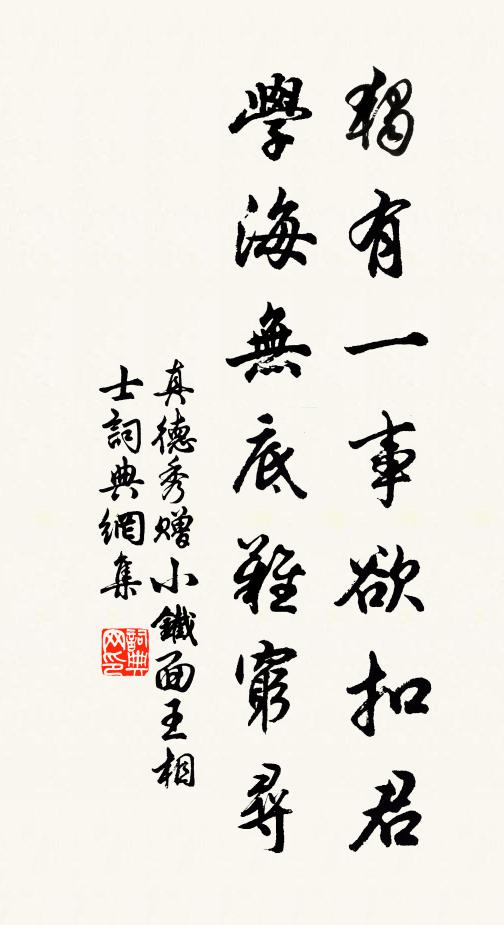 獨有一事欲扣君
學海無底難窮尋
真德秀贈小鐵面王相
士詞典網集
詞典
网印